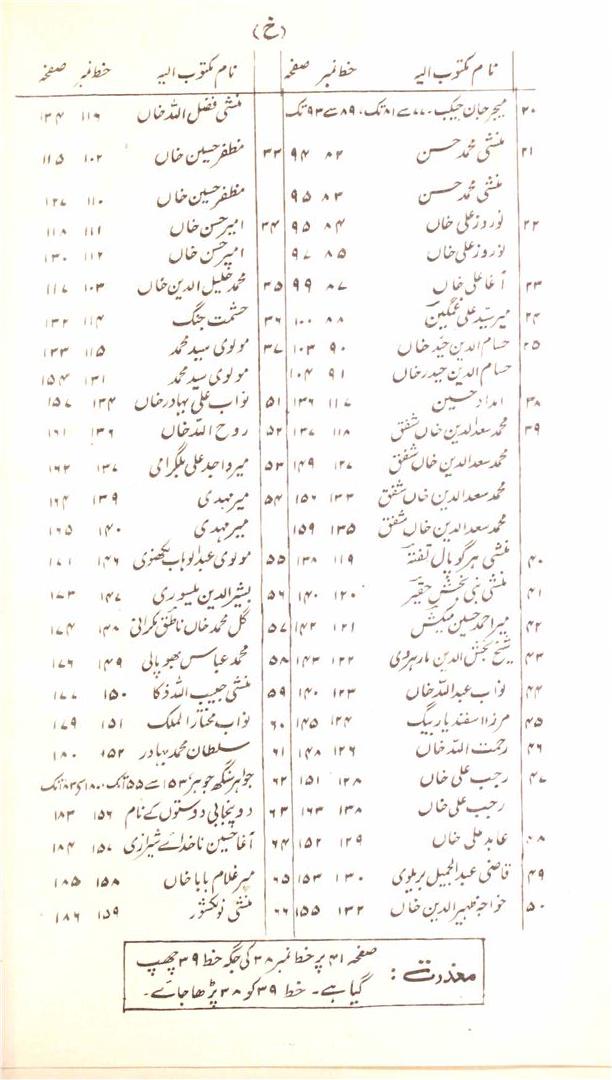 (خ)
نام مکتوب الیہ خط نمبر صفحہ
۲۰ میجر جان جیکب۔ ۷۷ سے ۸۱ تک، ۸۹ سے ۹۳ تک
۲۱ منشی محمد حسن ۸۲ ۹۴
منشی محمد حسن ۸۳ ۹۵
۲۲ نوروز علی خاں ۸۴ ۹۵
نوروز علی خاں ۸۵ ۹۷
۲۳ آغا علی خاں ۸۷ ۹۹
۲۴ میر سیّد علی غمگین ۸۸ ۱۰۰
۲۵ حسام الدین حیدر خاں ۹۰ ۱۰۳
حسام الدین حیدر خاں ۹۱ ۱۰۴
۳۸ امداد حسین ۱۱۷ ۱۳۶
۳۹ محمد سعد الدین خاں شفق ۱۱۸ ۱۳۷
محمد سعد الدین خاں شفق ۱۲۷ ۱۴۹
محمد سعد الدین خاں شفق ۱۳۳ ۱۵۶
محمد سعد الدین خاں شفق ۱۳۵ ۱۵۹
۴۰ منشی ہر گوپال تفتہ ۱۱۹ ۱۳۸
۴۱ منشی نبی بخش حقیر ۱۲۰ ۱۴۰
۴۲ میر احمد حسین میکش ۱۲۱ ۱۴۲
۴۳ شیخ بخش الدین مارہروی ۱۲۲ ۱۴۳
۴۴ نواب عبداللہ خاں ۱۲۳ ۱۴۰
۴۵ مرزا اسفندیار بیگ ۱۲۴ ۱۴۵
۴۶ رحمت اللہ خاں ۱۲۶ ۱۴۸
۴۷ رجب علی خاں ۱۲۸ ۱۵۱
رجب علی خاں ۱۳۸ ۱۶۳
۴۸ عابد علی خاں ۱۲۹ ۱۵۲
۴۹ قاضی عبدالجمیل بریلوی ۱۳۰ ۱۵۳
۵۰ خواجہ ظہیر الدین خاں ۱۳۲ ۱۵۵
نام مکتوب الیہ خط نمبر صفحہ
منشی فضل اللہ خاں ۱۱۶ ۱۳۴
۳۳ مظفر حسین خاں ۱۰۲ ۱۱۵
مظفر حسین خاں ۱۱۰ ۱۲۷
۳۴ امیر حسن خاں ۱۱۱ ۱۱۸
امیر حسن خاں ۱۱۲ ۱۳۰
۳۵ محمد خلیل الدین خاں ۱۰۳ ۱۱۷
۳۶ حشمت جنگ ۱۱۴ ۱۳۲
۳۷ مولوی سید محمد ۱۱۵ ۱۳۳
مولوی سید محمد ۱۳۱ ۱۵۴
۵۱ نواب علی بہادر خاں ۱۳۴ ۱۵۷
۵۲ روح اللہ خاں ۱۳۶ ۱۶۱
۵۳ میر واجد علی بلگرامی ۱۳۷ ۱۶۲
۵۴ میر مہدی ۱۳۹ ۱۶۴
میر مہدی ۱۴۰ ۱۶۵
۵۵ مولوی عبدالوہاب لکھنوی ۱۴۶ ۱۷۱
۵۶ بشیر الدین میسوری ۱۴۷ ۱۷۳
۵۷ گل محمد خاں ناطق مکرانی ۱۴۸ ۱۷۴
۵۸ محمد عباس بھوپالی ۱۴۹ ۱۷۶
۵۹ منشی حبیب اللہ ذکا ۱۵۰ ۱۷۷
۶۰ نواب مختار الملک ۱۵۱ ۱۷۹
۶۱ سلطان محمد بہادر ۱۵۲ ۱۸۰
۶۲ جواہر سنگھ جوہر ۱۵۳ سے ۵۵ تک، ۱۸۰ تا ۸۳ تک
۶۳ دو پنجابی دوستوں کے نام ۱۵۶ ۱۸۳
۶۴ آغا حسین ناخدائے شیرازی ۱۵۷ ۱۸۴
۶۵ میر غلام بابا خاں ۱۵۸ ۱۸۵
۶۶ منشی نولکشور ۱۵۹ ۱۸۶
معذرت: صفحہ ۴۱ پر خط نمبر ۳۸ کی جگہ خط ۳۹ چھپ
گیا ہے۔ خط ۳۹ کو ۳۸ پڑھا جائے۔